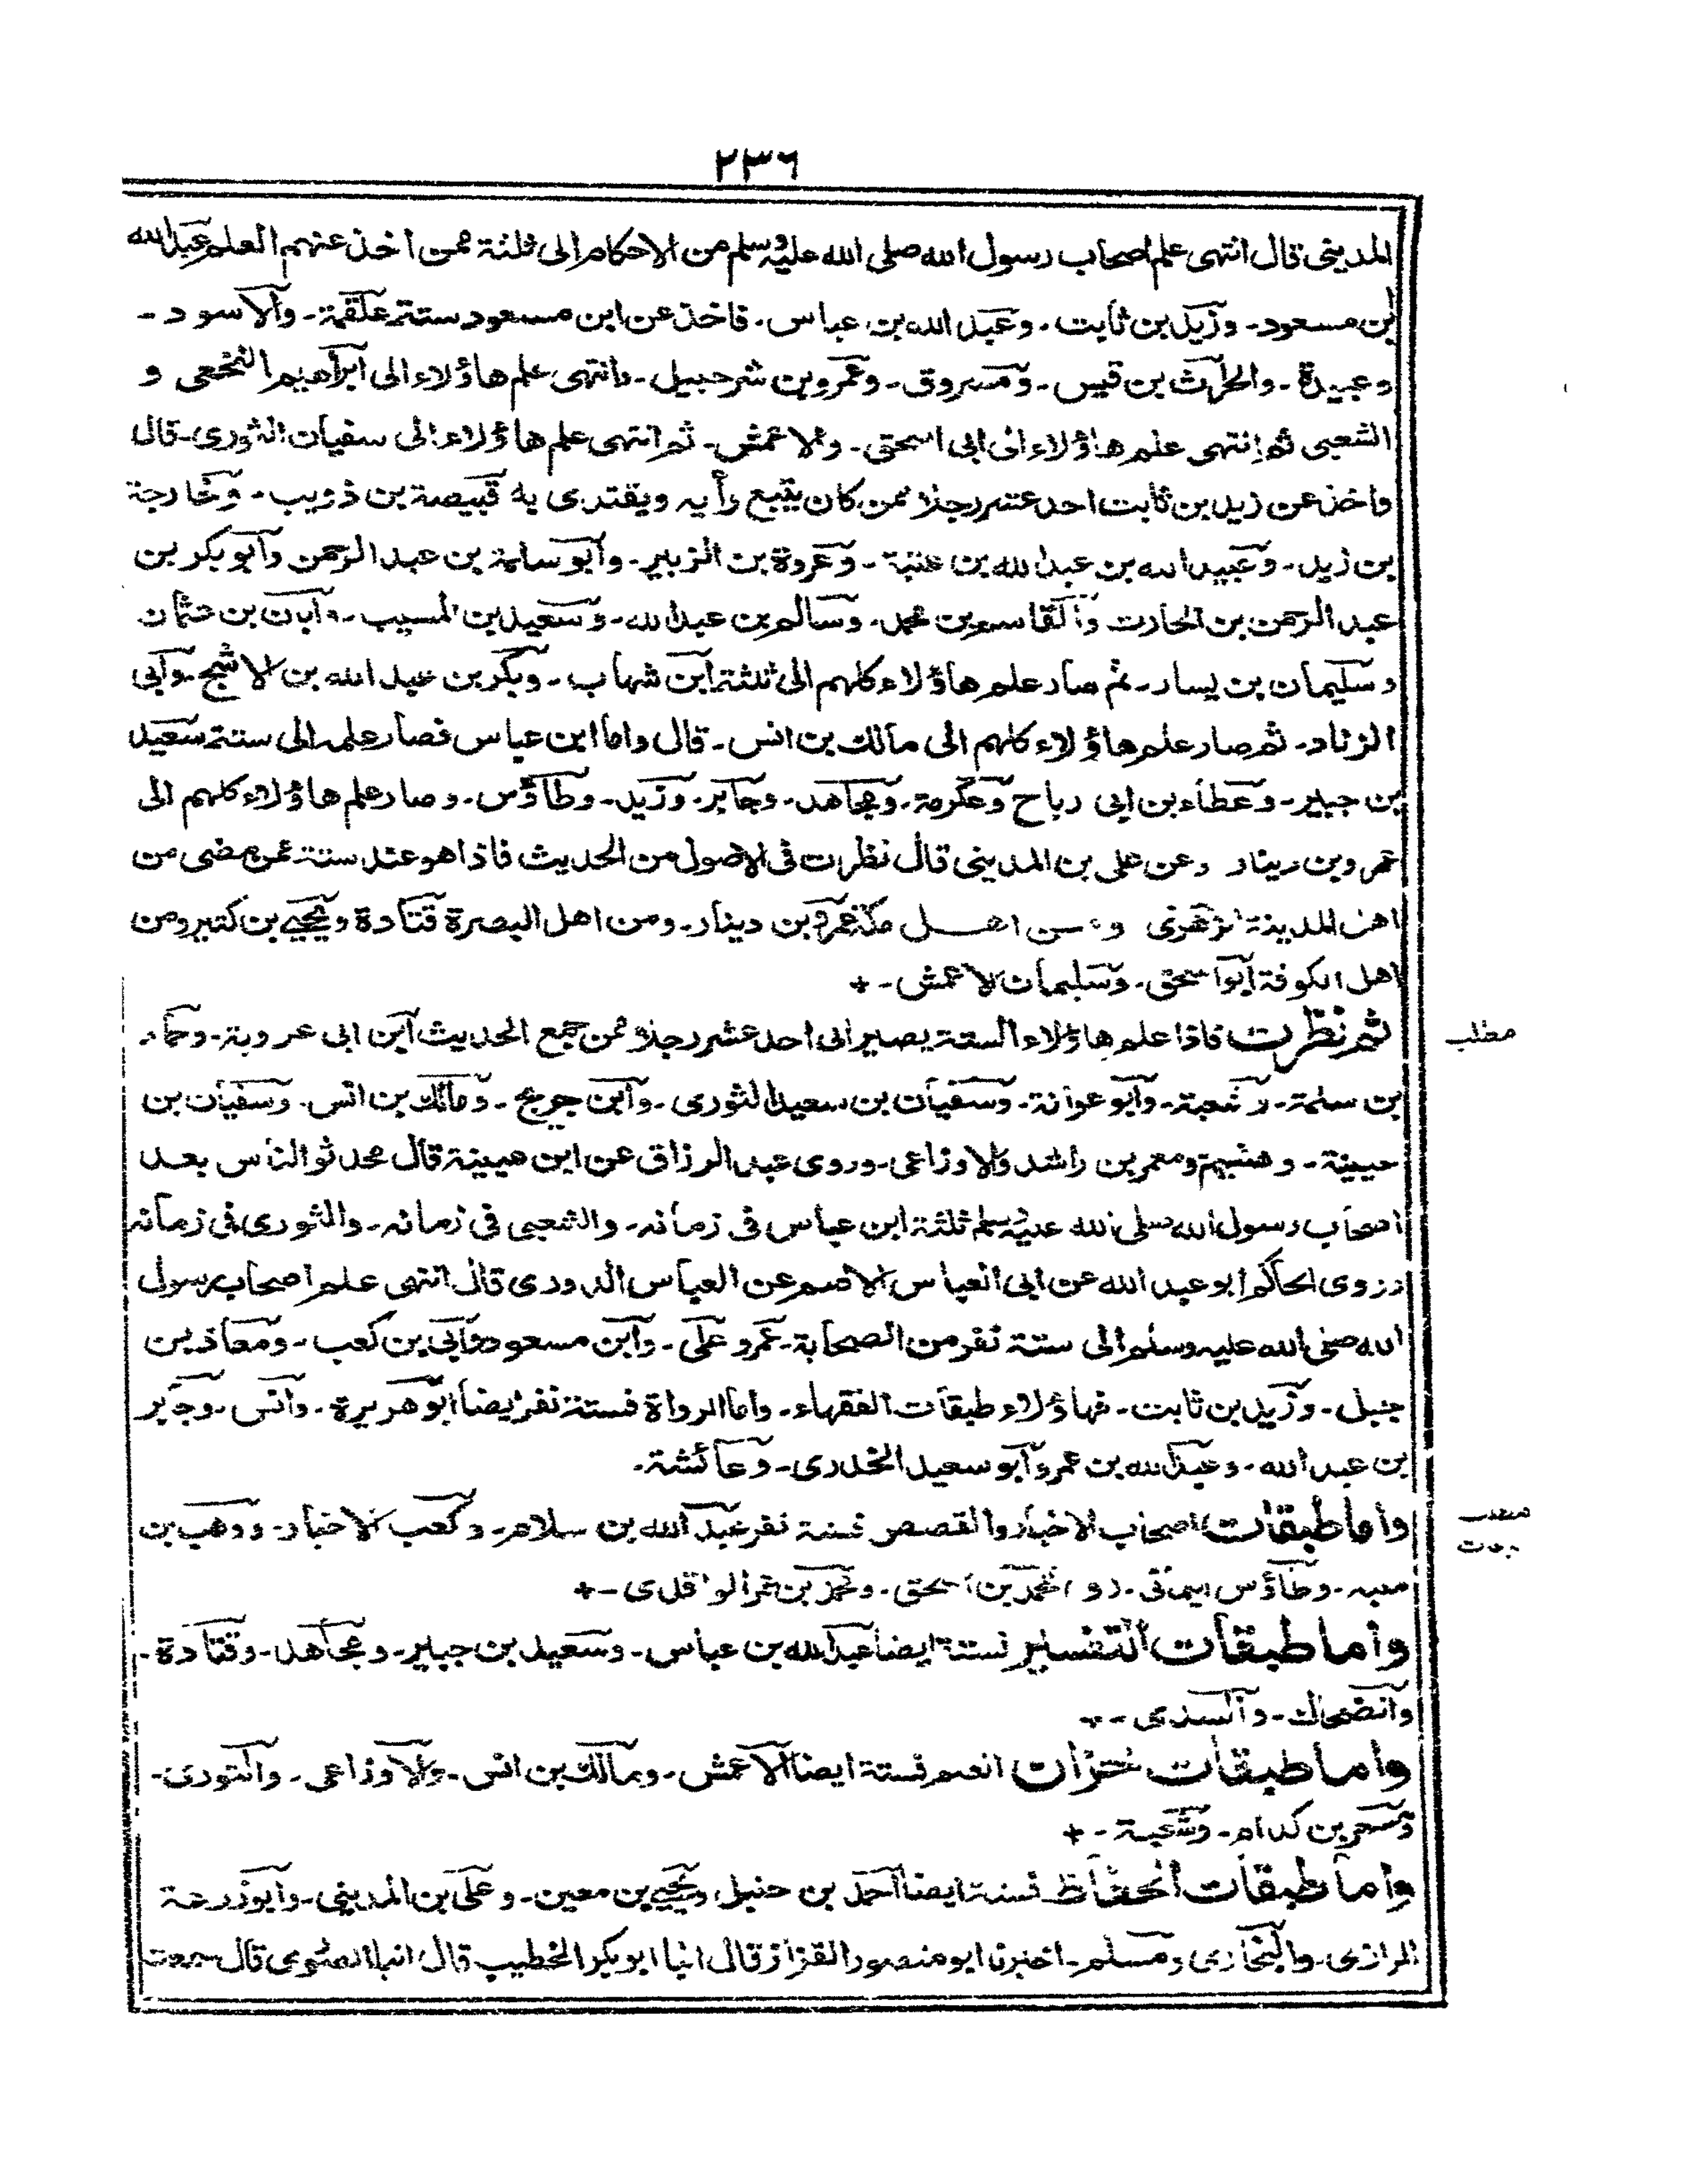 ٢٣٦
المديني قال انتهى علم اصحاب رسول الله صلى الله عليه وسلم من الاحكام الى ثلثة ممن اخذ عنهم العلم عبد الله
ابن مسعود۔ وزيد بن ثابت۔ وعبد الله بن عباس۔ فاخذ عن ابن مسعود ستة علقمة۔ والاسود۔
وعبيدة۔ والحٰرث بن قيس۔ ومسروق۔ وعمرو بن شرحبيل۔ وانتهى علم هاؤلاء الى ابراهيم النخعى و
الشعبى ثم انتهى علم هاؤلاء الى ابى اسحق۔ والاعمش۔ ثم انتهى علم هاؤلاء الى سفيان الثورى۔ قال
واخذ عن زيد بن ثابت احد عشر رجلا ممن كان يتبع رأيه ويقتدى به قبيصة بن ذويب۔ وخارجة
بن زيد۔ وعبيد الله بن عبد الله بن عتبة۔ وعروة بن الزبير۔ وابو سلمة بن عبد الرحمن وابو بكر بن
عبد الرحمن بن الحارث والقاسم بن محمد۔ وسالم بن عبد الله۔ وسعيد بن المسيب۔ وابان بن عثمان
وسليمان بن يسار۔ ثم صار علم هاؤلاء كلهم الى ثلثة ابن شهاب۔ وبكر بن عبد الله بن الاشج۔ وابى
الزناد۔ ثم صار علم هاؤلاء كلهم الى مالك بن انس۔ قال واما ابن عباس فصار علمه الى ستة سعيد
بن جبير۔ وعطاء بن ابى رباح وعكرمة۔ ومجاهد۔ وجابر۔ وزيد۔ وطاؤس۔ وصار علم هاؤلاء كلهم الى
عمرو بن دينار وعن على بن المدينى قال نظرت فى الاصول من الحديث فاذا هو عند ستة ممن مضى من
اهل المدينة الزهرى ومن اهل مكة عمرو بن دينار۔ ومن اهل البصرة قتادة ويحيى بن كثير ومن
اهل الكوفة ابو اسحق۔ وسليمان الاعمش۔+
ثم نظرت فاذا علم هاؤلاء الستة يصير الى احد عشر رجلا ممن جمع الحديث ابن ابى عروبة۔ وحماد
مطلب
بن سلمة۔ وشعبة۔ وابو عوانة۔ وسفيان بن سعيد الثورى۔ وابن جريج۔ ومالك بن انس۔ وسفيان بن
عيينة۔ وهشيم ومعمر بن راشد والاوزاعى۔ وروى عبد الرزاق عن ابن عيينة قال محدثو الناس بعد
اصحاب رسول الله صلى الله عليه وسلم ثلثة ابن عباس فى زمانه۔ والشعبى فى زمانه۔ والثورى فى زمانه
وروى الحاكم ابو عبد الله عن ابى العباس الاصم عن العباس الدورى قال انتهى علم اصحاب رسول
الله صلى الله عليه وسلم الى ستة نفر من الصحابة۔ عمر وعلى۔ وابن مسعود وابى بن كعب۔ ومعاذ بن
جبل۔ وزيد بن ثابت۔ فهاؤلاء طبقات الفقهاء۔ واما الرواة فستة نفر ايضا ابو هريرة۔ وانس۔ وجابر
بن عبد الله۔ وعبد الله بن عمر وابو سعيد الخدرى۔ وعائشة۔
واما طبقات اصحاب الاخبار والقصص فستة نفر عبد الله بن سلام۔ وكعب الاحبار۔ ووهب بن
مطلب
منبه۔ وطاؤس اليمانى۔ ومحمد بن اسحق۔ ومحمد بن عمر الواقدى۔+
واما طبقات التفسير فستة ايضا عبد الله بن عباس۔ وسعيد بن جبير۔ ومجاهد۔ وقتادة۔
والضحاك۔ والسدى۔+
واما طبقات خزان العلم فستة ايضا الاعمش۔ ومالك بن انس۔ والاوزاعى۔ والثورى۔
ومسعر بن كدام۔ وشعبة۔+
واما طبقات الحفاظ فستة ايضا احمد بن حنبل ويحيى بن معين۔ وعلى بن المدينى۔ وابو زرعة
الرازى۔ والبخارى ومسلم۔ اخبرنا ابو منصور القزاز قال انبا ابو بكر الخطيب قال انبا الصورى قال سمعت